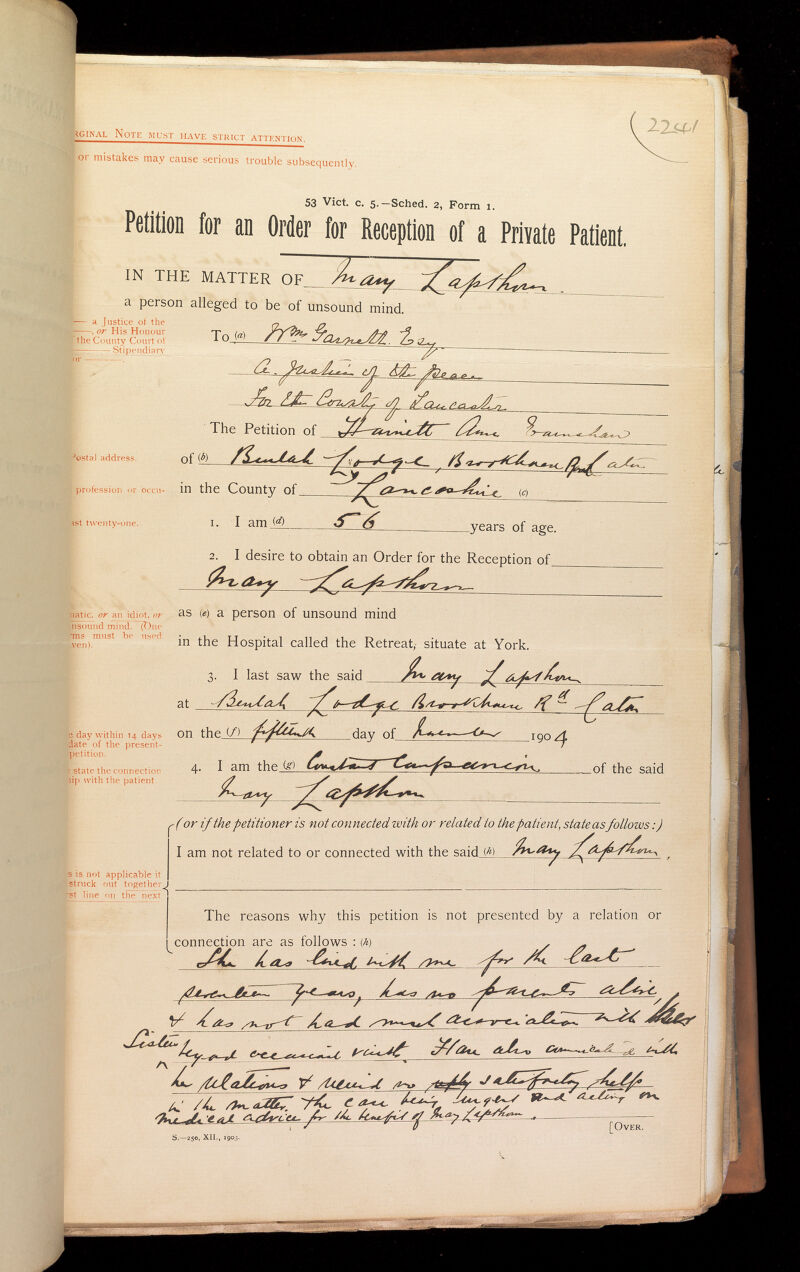 2241
RGINAL NOTE MUST HAVE STRICT ATTENTION.
or mistakes may cause serious trouble subsequently.
53 Vict. c. 5.—Sched. 2, Form 1.
Petition for an Order for Reception of a Private Patient.
IN THE MATTER OF Mary Lapthorn.
a person alleged to be of unsound mind.
— a Justice of the
——, or His Honour
the County Court of
—— Stipendiary
or ——.
To (a) Wm Garnett Esq.
a Justice of the peace
For the County of Lancaster
The Petition of Harriett Ann
Postal address.
of (b) Beulah Lodge, Brookhouse Road Caton
profession or occu-
in the County of Lancashire (c)
ast twenty-one.
1. I am (d) 56 years of age.
2. I desire to obtain an Order for the Reception of
Mary Lapthorn
natic, or an idiot, or
nsound mind. (One
rms must be used
ven).
as (e) a person of unsound mind
in the Hospital called the Retreat, situate at York.
3. I last saw the said Mary Lapthorn
at Beulah Lodge Brookhouse Rd Caton
e day within 14 days
date of the present-
petition.
on the (f) fifteenth day of November 1904
state the connection
ip with the patient
4. I am the (g) Constant Companion of the said
Mary Lapthorn
(or if the petitioner is not connected with or related to the patient, state as follows:)
I am not related to or connected with the said (h) Mary Lapthorn.
s is not applicable it
struck out together
rst line on the next
The reasons why this petition is not presented by a relation or
connection are as follows : (h)
She has lived with me for the last
seventeen years, has no parents alive,
& has not had much association with her
Sister beyond occasional visits. Have also communicated with
her relations & received no reply satisfactory help
in the matter. The case being urgent and acting on
medical advice for the benefit of Mary Lapthorn.
[OVER.
S.—256, XII., 1903.